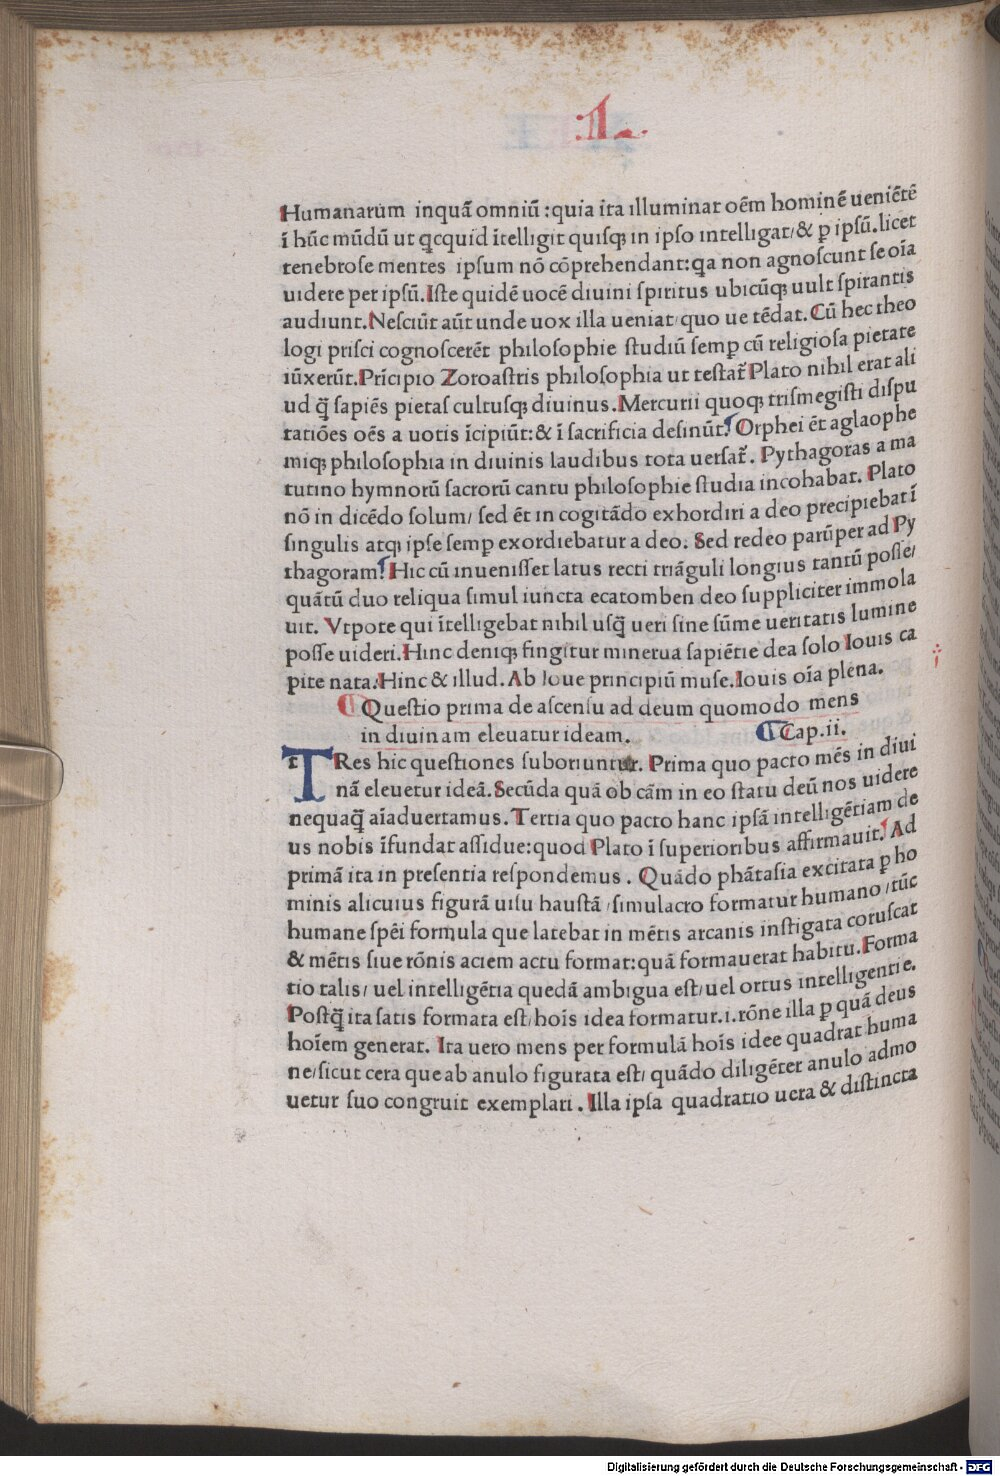 .1.
Humanarum inquā omniū :quia ita illuminat oēm hominē ueniētē
ī hūc mūdū ut qcquid ītelligit quisꝗ in ipſo intelligat/& ꝑ ipſū.licet
tenebroſe mentes ipſum nō cōprehendant:qa non agnoſcunt ſe oīa
uidere per ipſū.Iſte quidē uocē diuini ſpiritus ubicūꝗ uult ſpirantis
audiunt.Neſciūt aūt unde uox illa ueniat/quo ue tēdat.Cū hec theo
logi priſci cognoſcerēt philoſophie ſtudiū ſemꝑ cū religioſa pietate
iūxerūt.Prīcipio Zoroaſtris philoſophia ut teſtat̄ Plato nihil erat ali
ud q̄ ſapiēs pietaſ cultuſꝗ diuinus.Mercurii quoꝗ triſmegiſti diſpu
tatiōes oēs a uotis īcipiūt:& ī ſacrificia deſinūt.Orphei ēt aglaophe
miꝗ philoſophia in diuinis laudibus tota uerſat̄. Pythagoras a ma
tutino hymnorū ſacrorū cantu philoſophie ſtudia incohabat. Plato
nō in dicēdo ſolum/ ſed ēt in cogitādo exhordiri a deo precipiebat ī
ſingulis atꝗ ipſe ſemꝑ exordiebatur a deo. Sed redeo parūper ad Py
thagoram.Hic cū inueniſſet latus recti triāguli longius tantū poſſe/
quātū duo reliqua ſimul iuncta ecatomben deo ſuppliciter immola
uit. Vtpote qui ītelligebat nihil uſq̄ ueri ſine ſūme ueritatis lumine
poſſe uideri.Hinc deniꝗ fingitur minerua ſapiētie dea ſolo Iouis ca
pite nata.Hinc & illud.Ab Ioue principiū muſe.Iouis oīa plena.
¶Queſtio prima de aſcenſu ad deum quomodo mens
in diuinam eleuatur ideam. ¶Cap.ii.
TRes hic queſtiones ſuboriuntur. Prima quo pacto mēs in diui
nā eleuetur ideā.Secūda quā ob cām in eo ſtatu deū nos uidere
nequaq̄ aīaduertamus.Tertia quo pacto hanc ipſā intelligētiam de
us nobis īfundat aſſidue:quod Plato ī ſuperioribus affirmauit.Ad
primā ita in preſentia reſpondemus . Quādo phātaſia excitata ꝑ ho
minis alicuius figurā uiſu hauſtā/ſimulacro formatur humano/tūc
humane ſpēi formula que latebat in mētis arcanis inſtigata coruſcat
& mētis ſiue rōnis aciem actu format:quā formauerat habitu.Forma
tio talis/ uel intelligētia quedā ambigua eſt/uel ortus intelligentie.
Poſtq̄ ita ſatis formata eſt/hoīs idea formatur.i.rōne illa ꝑ quā deus
hoīem generat. Ita uero mens per formulā hoīs idee quadrat huma
ne/ſicut cera que ab anulo figurata eſt/ quādo diligēter anulo admo
uetur ſuo congruit exemplari.Illa ipſa quadratio uera & diſtincta
Digitalisierung gefördert durch die Deutsche Forschungsgemeinschaft - DFG